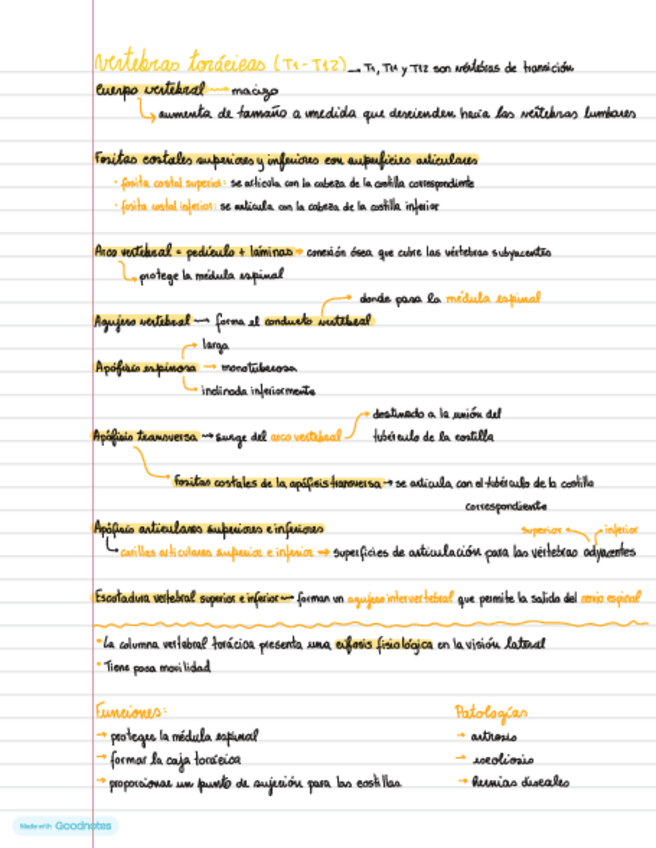 vértebras torácicas (T1-T12) → T1, T11 y T12 son vértebras de transición
Cuerpo vertebral → macizo
aumenta de tamaño a medida que descienden hacia las vértebras lumbares
Fositas costales superiores y inferiores con superficies articulares
· fosita costal superior: se articula con la cabeza de la costilla correspondiente
· fosita costal inferior: se articula con la cabeza de la costilla inferior
Arco vertebral = pedículo + láminas → conexión ósea que cubre las vértebras subyacentes
protege la médula espinal
donde pasa la médula espinal
Agujero vertebral → forma el conducto vertebral
larga
Apófisis espinosa → monotuberosa
inclinada inferiormente
destinado a la unión del
Apófisis transversa → surge del arco vertebral tubérculo de la costilla
fositas costales de la apófisis transversa → se articula con el tubérculo de la costilla
correspondiente
Apófisis articulares superiores e inferiores superior inferior
carillas articulares superior e inferior → superficies de articulación para las vértebras adyacentes
Escotadura vertebral superior e inferior → forman un agujero intervertebral que permite la salida del nervio espinal
· La columna vertebral torácica presenta una cifosis fisiológica en la visión lateral
· Tiene poca movilidad
Funciones: Patologías
→ proteger la médula espinal → artrosis
→ formar la caja torácica → escoliosis
→ proporcionar un punto de sujeción para las costillas → hernias discales
Made with Goodnotes